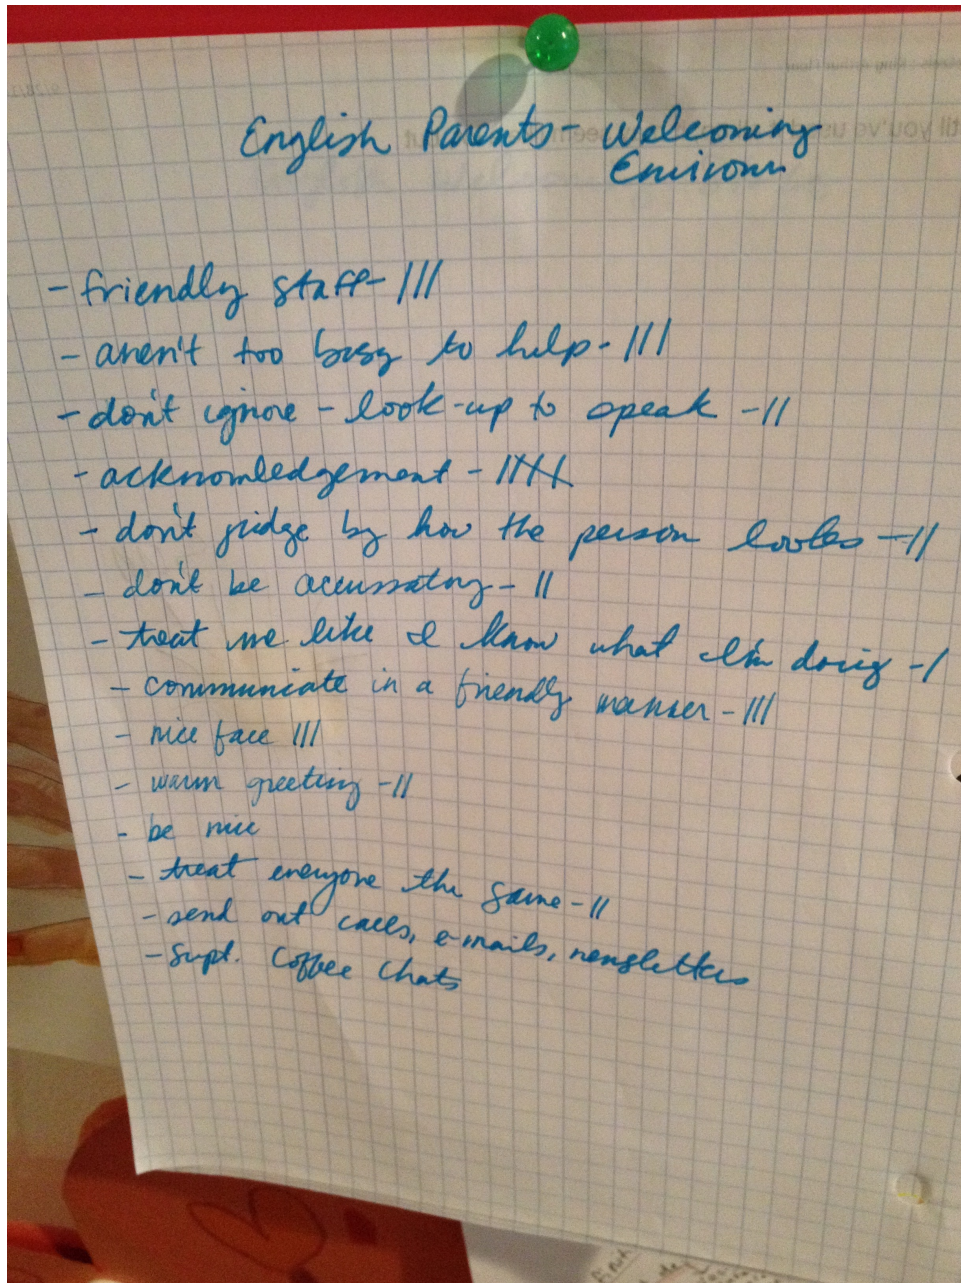 English Parents - Welcoming
Environ
- friendly staff - |||
- aren't too busy to help - |||
- don't ignore - look-up to speak - ||
- acknowledgement - ||||
- don't judge by how the person looks - ||
- don't be accussatory - ||
- treat me like I know what I'm doing - |
- communicate in a friendly manner - |||
- nice face |||
- warm greeting - ||
- be nice
- treat everyone the same - ||
- send out calls, e-mails, newsletters
- Supt. Coffee Chats